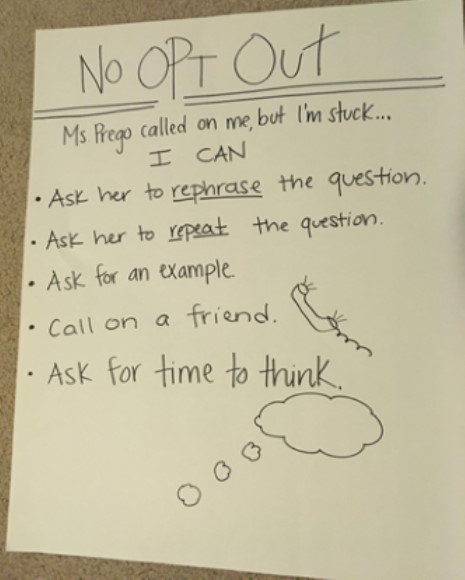 No OPT Out
Ms Prego called on me, but I'm stuck...
I CAN
• Ask her to rephrase the question.
• Ask her to repeat the question.
• Ask for an example.
• Call on a friend.
• Ask for time to think.